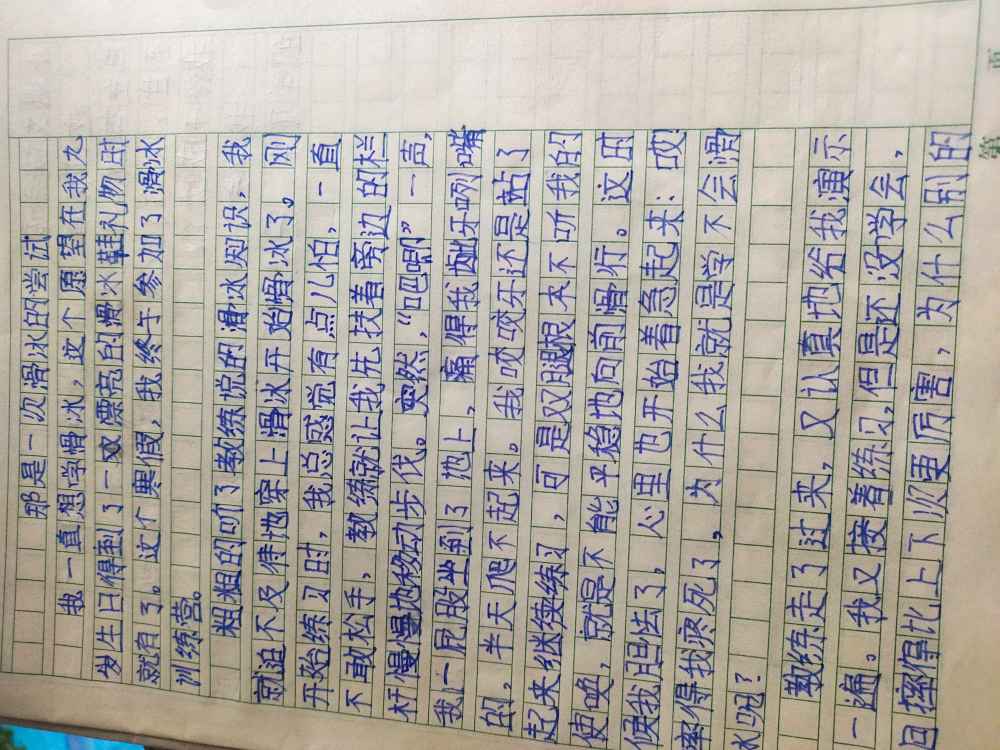 那是一次滑冰的尝试
我一直想学滑冰，这个愿望在我九
岁生日得到了一双漂亮的滑冰鞋礼物时
就有了。这个寒假，我终于参加了滑冰
训练营。
粗粗的叨了教练说的滑冰知识，我
就迫不及待地穿上滑冰开始滑冰了。刚
开始练习时，我总感觉有点儿怕，一直
不敢松手，教练就让我先扶着旁边的栏
杆慢慢地移动步伐。突然，“吧唧”一声，
我一屁股坐到了地上，痛得我龇牙咧嘴
的，半天爬不起来。我咬咬牙还是站了
起来继续练习，可是双腿根本不听我的
使唤，就是不能平稳地向前滑行。这时
候我胆怯了，心里也开始着急起来：哎
率得我疼死了，为什么我就是学不会滑
冰呢？
教练走了过来，又认真地给我演示
一遍。我又接着练习，但是还没学会，
回摔得比上下次更厉害，为什么别的
第 页